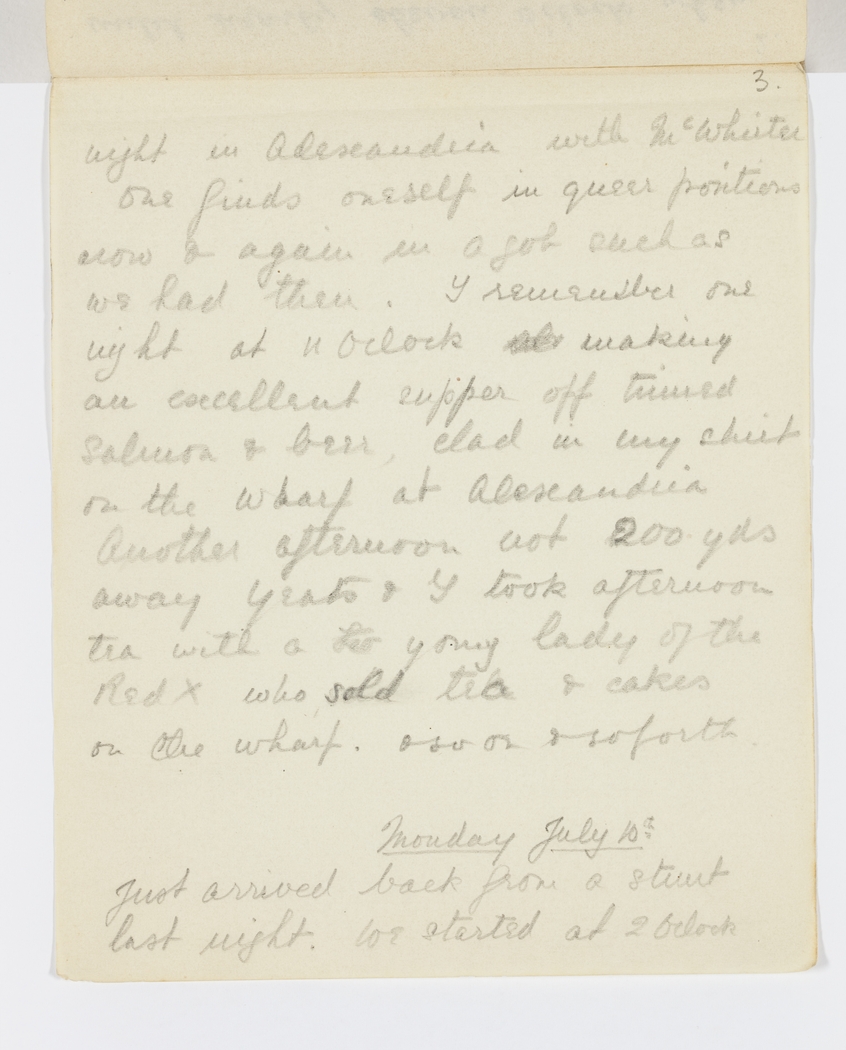 3.
night in Alexeandria with McWhirter
One finds oneself in queer positions
now & again in a job such as
we had then. I remember one
night at 11 Oclock making
an excellent supper off tinned
Salmon & beer, clad in my shirt
on the wharf at Alexeandria
Another afternoon not 200 yds
away Yeats & I took afternoon
tea with a yong lady of the
Red X who sold tea & cakes
on the wharf. & so on & so forth
Monday July 10th
Just arrived back from a stunt
last night. We started at 2 Oclock